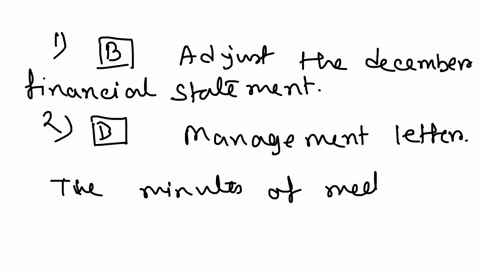 1) B Adjust the december
financial statement.
2) D Management letter.
The minutes of meet